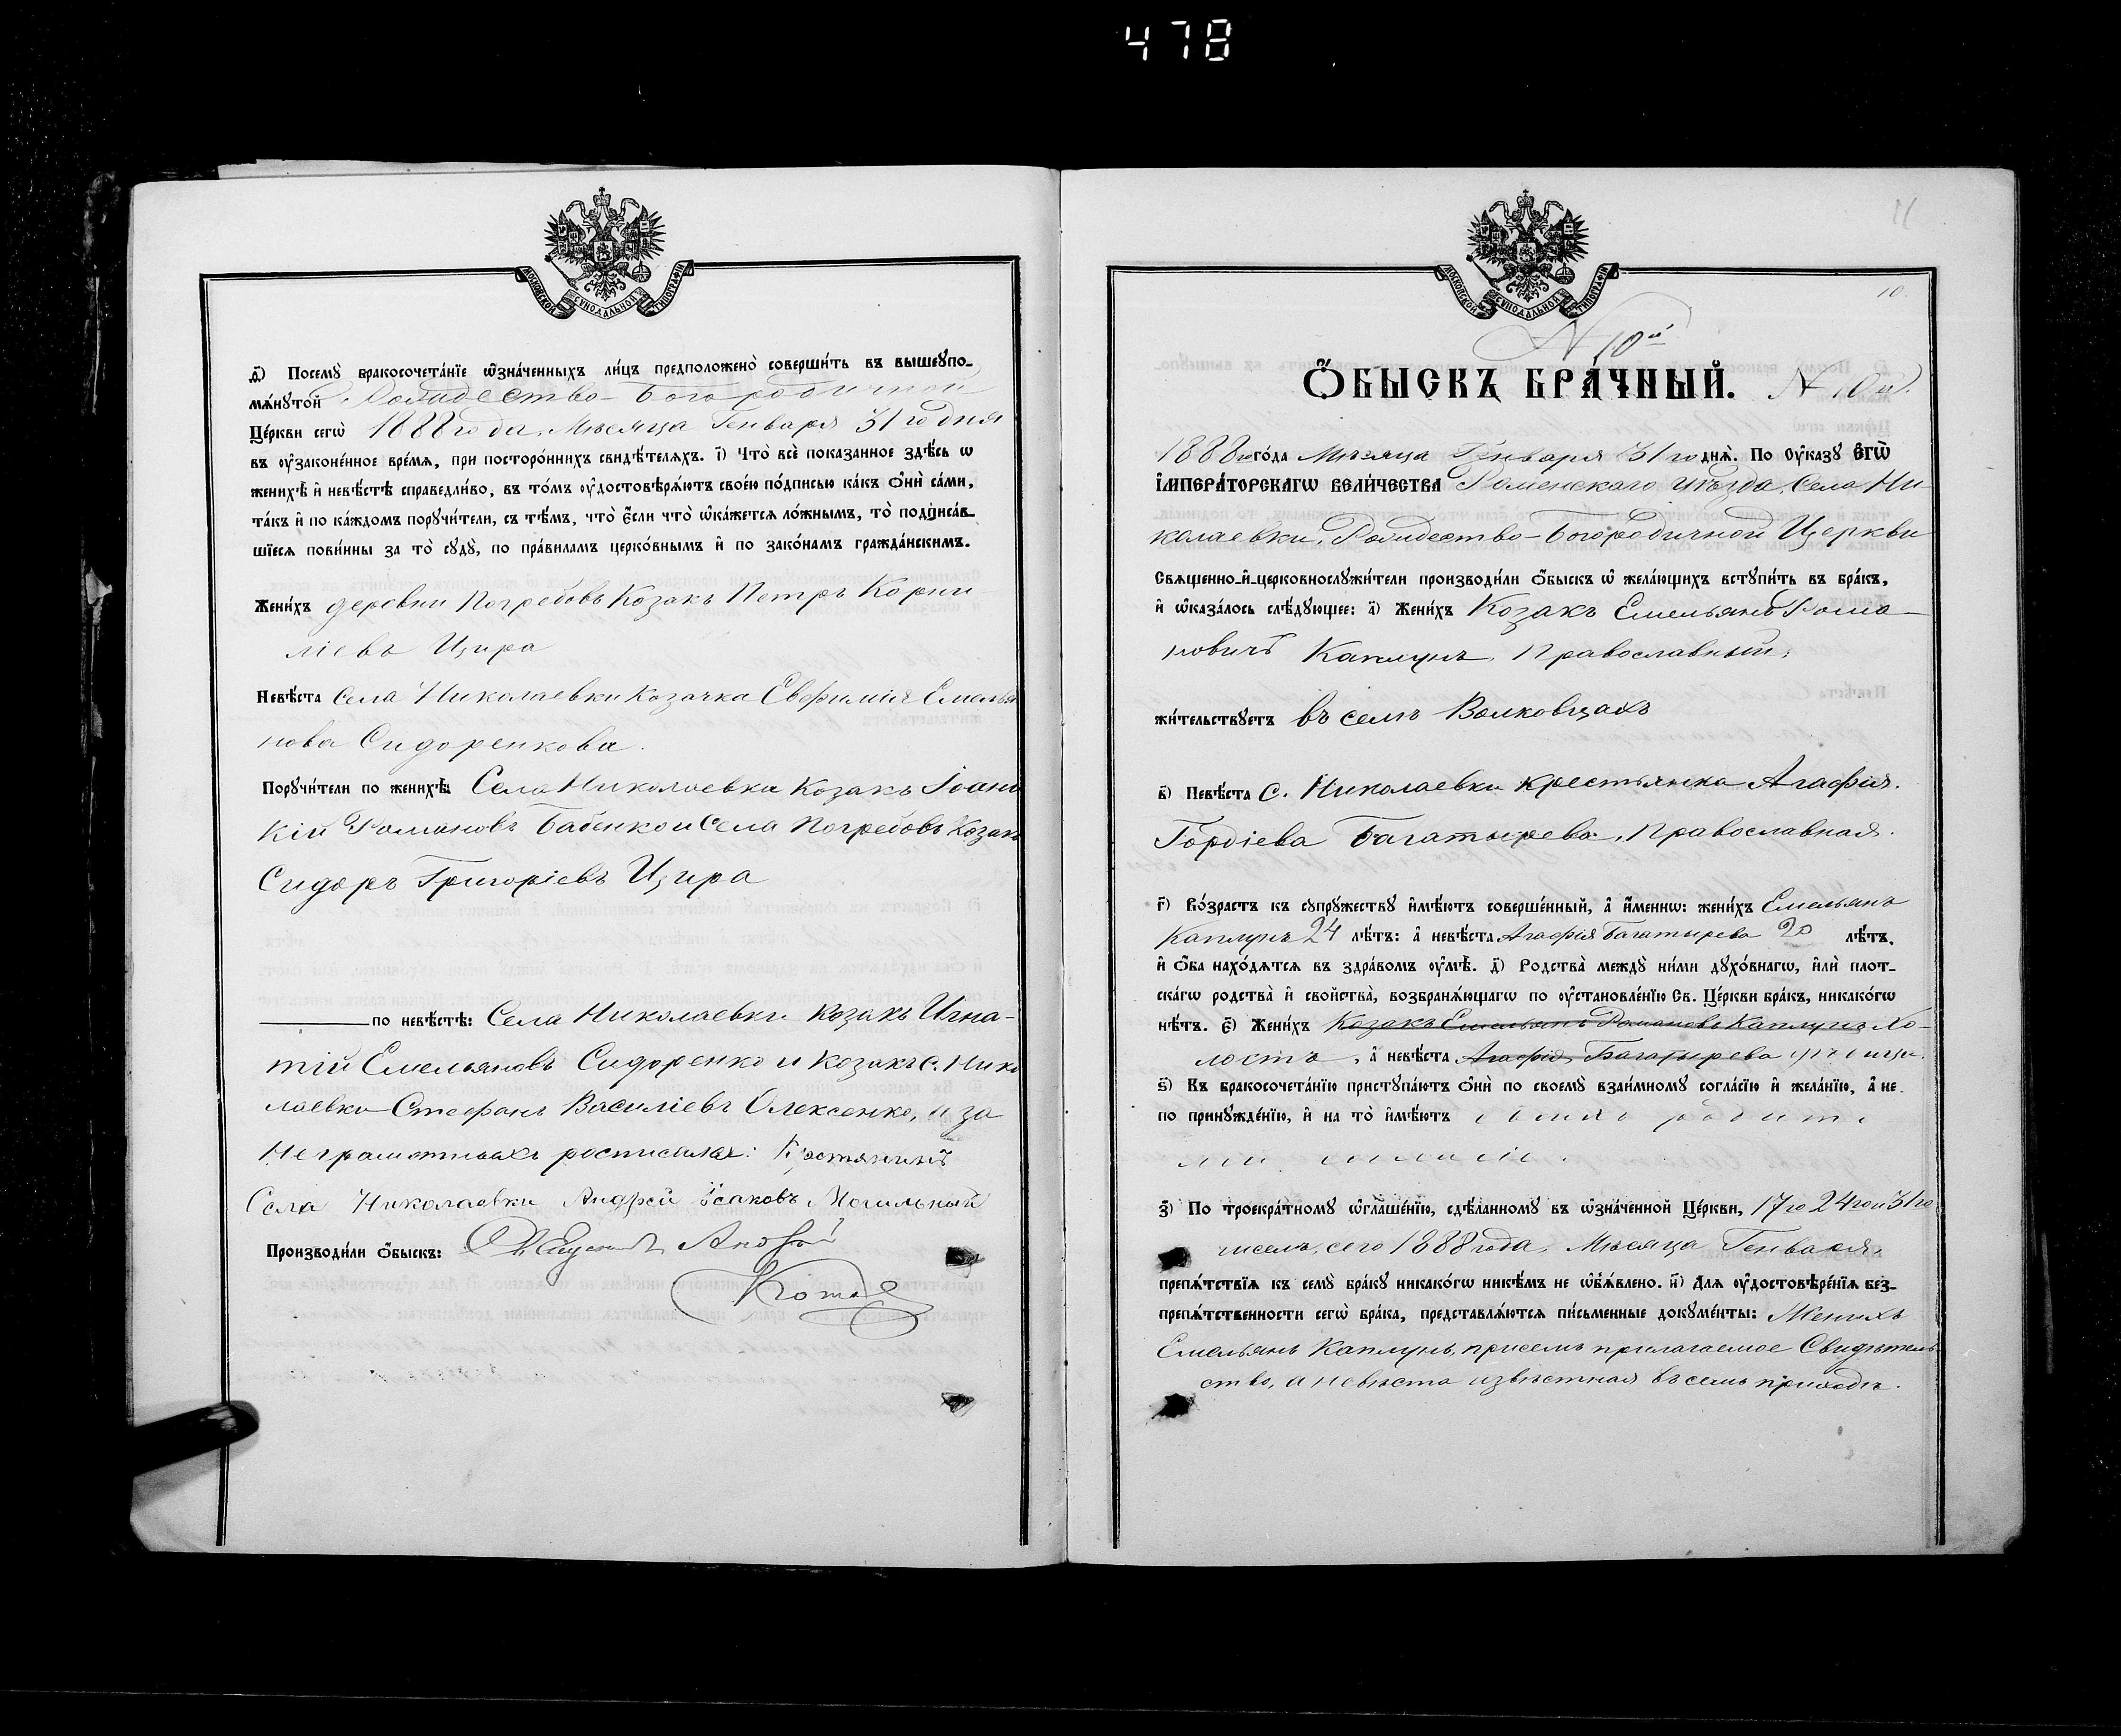 478
МОСКОВСКОЙ СѴНОДАЛЬНОЙ ТИПОГРАФІИ
ѳ҃) Посемꙋ̀ вракосочета́нїе ѡ҆зна́ченныхъ ли́цъ предположено̀ соверши́ть въ вышеꙋпо-
мѧ́нꙋтой Рождество-Богородичной
Це́ркви сегѡ̀ 1888 года, Мѣсяца Генваря 31 го дня
въ ᲂу҆зако́ненное вре́мѧ, при посторо́ннихъ свидѣ́телѧхъ. і҃) Что̀ всѐ показанное здѣ́сь ѡ
женихѣ̀ и҆ невѣ́стѣ справедли́во, въ то́мъ ᲂу҆достовѣрѧ́ютъ свое́ю по́дписью ка́къ ѻ҆нѝ са́ми,
та́къ и҆ по ка́ждомъ порꙋчи́тели, съ тѣ́мъ, что̀ є҆́сли что̀ ѡ҆ка́жетсѧ ло́жнымъ, то̀ подписа́в-
шїесѧ пови́нны за то̀ сꙋдꙋ̀, по пра́виламъ церко́внымъ и҆ по зако́намъ гражда́нскимъ.
Жени́хъ деревни Погребовъ Козакъ Петръ Корни-
ліевъ Цира
Невѣ́ста Села Николаевки Козачка Евфимія Емелья
нова Сидоренкова.
Порꙋчи́тели по женихѣ̀: Села Николаевки Козакъ Іоани
кій Романовъ Бабенко и Села Погребовъ Козакъ
Сидоръ Григоріевъ Цира
по невѣ́стѣ: Села Николаевки Козакъ Игна-
тій Емельяновъ Сидоренко и Козакъ С. Нико
лаевки Стефанъ Василіевъ Олексенко, а за
Неграмотныхъ росписался: Крстянинъ
Села Николаевки Андрей Ісаковъ Могильный
Производи́ли ѻ҆́быскъ: Андрей
11
10.
МОСКОВСКОЙ СѴНОДАЛЬНОЙ ТИПОГРАФІИ
N 10й
Ѻ҆́БЫСКЪ БРА́ЧНЫЙ. N 10й.
1888 го го́да Мѣсяца Генваря 31 го днѧ̀. По ᲂу҆ка́зꙋ Є҆гѡ̀
І҆мпера́торскагѡ вели́чества Роменскаго Уѣзда, Села Ни-
колаевки, Рождество-Богородичной Церкви
Свѧщенно-и҆-церковнослꙋжи́тели производи́ли ѻ҆́быскъ ѡ҆ жела́ющихъ встꙋпи́ть въ бра́къ,
и҆ ѡ҆каза́лось слѣ́дꙋющее: а҃) Жени́хъ Козакъ Емельянъ Рома-
новичъ Каплунъ, Православный,
жи́тельствꙋетъ въ селѣ Волковцахъ
в҃) Невѣ́ста С. Николаевки Крестьянка Агафія.
Гордіева Багатырева, Православная.
г҃) Во́зрастъ къ сꙋпрꙋ́жествꙋ и҆мѣ́ютъ соверше́нный, а҆ и҆́меннѡ: жени́хъ Емельянъ
Каплунъ 24 лѣ́тъ: а҆ невѣ́ста Агафія Багатырева 20 лѣ́тъ.
и҆ ѻ҆́ба нахо́дѧтсѧ въ здра́вомъ ᲂу҆мѣ̀. д҃) Родства̀ междꙋ̀ ни́ми дꙋхо́внагѡ, и҆лѝ плот-
ска́гѡ родства̀ и҆ свойства̀, возбранѧ́ющагѡ по ᲂу҆становле́нїю Св. Це́ркви бра́къ, никако́гѡ
нѣ́тъ. є҃) Жени́хъ Козакъ Емельянъ Романовъ Каплунъ Хо-
лостъ, а҆ невѣ́ста Агафія Багатырева дѣвица.
ѕ҃) Къ бракосочета́нїю пристꙋпа́ютъ ѻ҆нѝ по своемꙋ̀ взаи́мномꙋ согла́сїю и҆ жела́нїю, а҆ не
по принꙋжде́нїю, и҆ на то̀ и҆мѣ́ютъ
з҃) По троекра́тномꙋ ѡ҆глаше́нїю, сдѣ́ланномꙋ въ ѡ҆зна́ченной Це́ркви, 17го 24го и 31го
числъ, сего 1888 года, Мѣсяца Генваря,
препѧ́тствїѧ къ семꙋ̀ бра́кꙋ никако́гѡ никѣ́мъ не ѡ҆б̾ѧ́влено. и҃) Длѧ ᲂу҆достовѣре́нїѧ без-
препѧ́тственности сегѡ̀ бра́ка, представлѧ́ютсѧ пи́сьменные докꙋме́нты: Женихъ
Емельянъ Каплунъ, присемъ прилагаемое Свидѣтель
ство, а невѣста извѣстная въ семъ приходѣ.